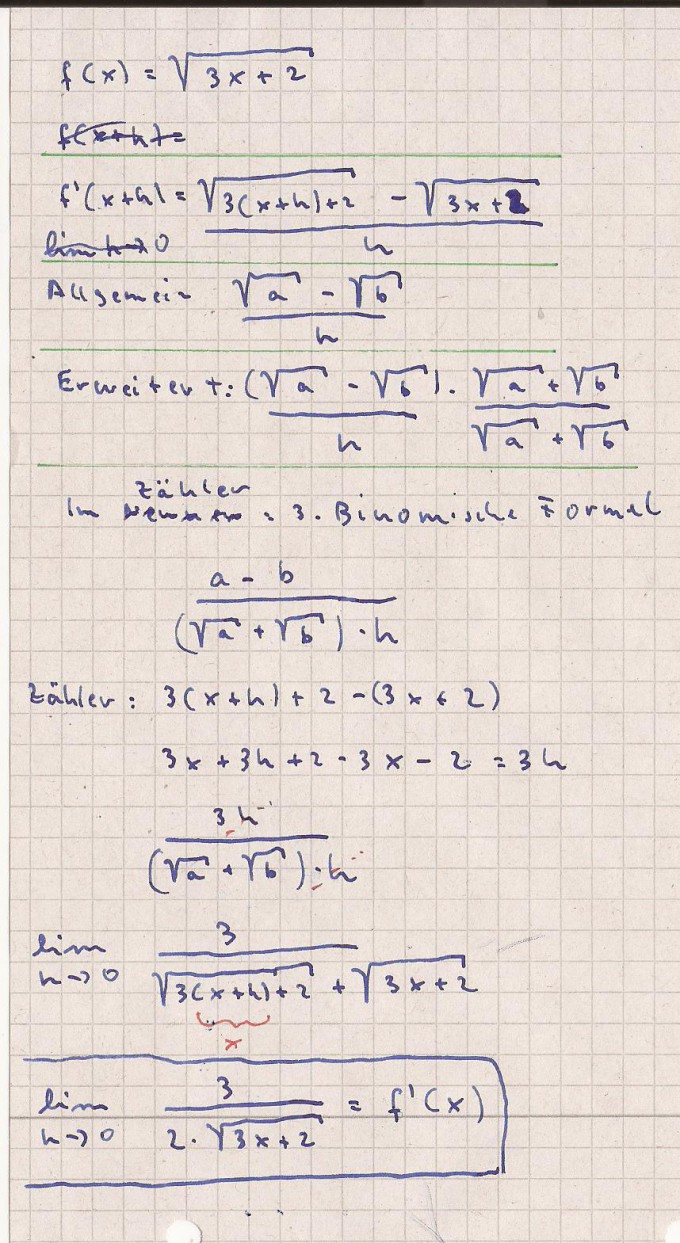 f(x) = √(3x + 2)
f(x+h) =
f'(x+h) = (√(3(x+h)+2) - √(3x+2)) / h
lim h→0
Allgemein (√a - √b) / h
Erweitert: (√a - √b) / h · (√a + √b) / (√a + √b)
Zähler
Im Nenner = 3. Binomische Formel
(a - b) / ((√a + √b) · h)
Zähler: 3(x+h) + 2 - (3x + 2)
3x + 3h + 2 - 3x - 2 = 3h
3h / ((√a + √b) · h)
lim h→0 3 / (√(3(x+h)+2) + √(3x+2))
x
lim h→0 3 / (2 · √(3x+2)) = f'(x)